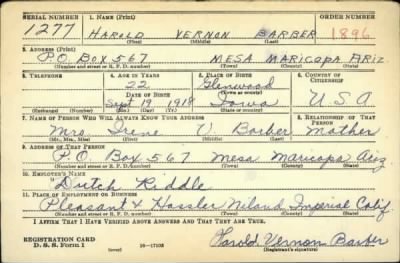 SERIAL NUMBER 1. NAME (Print) ORDER NUMBER
1277 HAROLD VERNON BARBER 1896
(First) (Middle) (Last)
2. ADDRESS (Print)
P.O. BOX 567 MESA MARICOPA ARIZ
(Number and street or R. F. D. number) (Town) (County) (State)
3. TELEPHONE 4. AGE IN YEARS 5. PLACE OF BIRTH 6. COUNTRY OF CITIZENSHIP
22 Glenwood
DATE OF BIRTH (Town or county)
Sept 19 1918 Iowa U S A
(Exchange) (Number) (Mo.) (Day) (Yr.) (State or country)
7. NAME OF PERSON WHO WILL ALWAYS KNOW YOUR ADDRESS 8. RELATIONSHIP OF THAT PERSON
Mrs. Irene V. Barber Mother
(Mr., Mrs., Miss) (First) (Middle) (Last)
9. ADDRESS OF THAT PERSON
P.O. Box 567 Mesa Maricopa Ariz
(Number and street or R. F. D. number) (Town) (County) (State)
10. EMPLOYER'S NAME
Dutch Riddle
11. PLACE OF EMPLOYMENT OR BUSINESS
Pleasant & Hassler Niland Imperial Calif
(Number and street or R. F. D. number) (Town) (County) (State)
I AFFIRM THAT I HAVE VERIFIED ABOVE ANSWERS AND THAT THEY ARE TRUE.
REGISTRATION CARD
D. S. S. Form 1 (over) 16—17105 Harold Vernon Barber
(Registrant's signature)